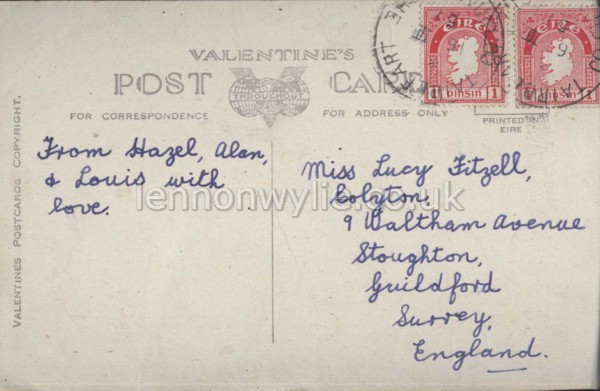 VALENTINE'S
POST CARD
FAMOUS
THROUGHOUT
THE WORLD
FOR CORRESPONDENCE
FOR ADDRESS ONLY
PRINTED IN
EIRE
éire
1 pinsin 1
éire
pinsin 1
From Hazel, Alan,
& Louis with
love.
Miss Lucy Fitzell,
Colyton,
9 Waltham Avenue
Stoughton,
Guildford
Surrey,
England.
VALENTINES POSTCARDS COPYRIGHT.
lennonwylie.co.uk